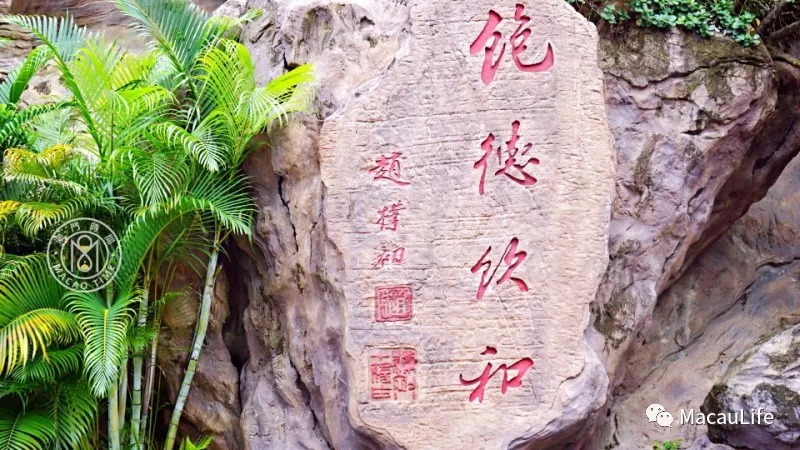 飽德飲和
趙樸初
澳門時間
MACAO TIMES
MacauLife